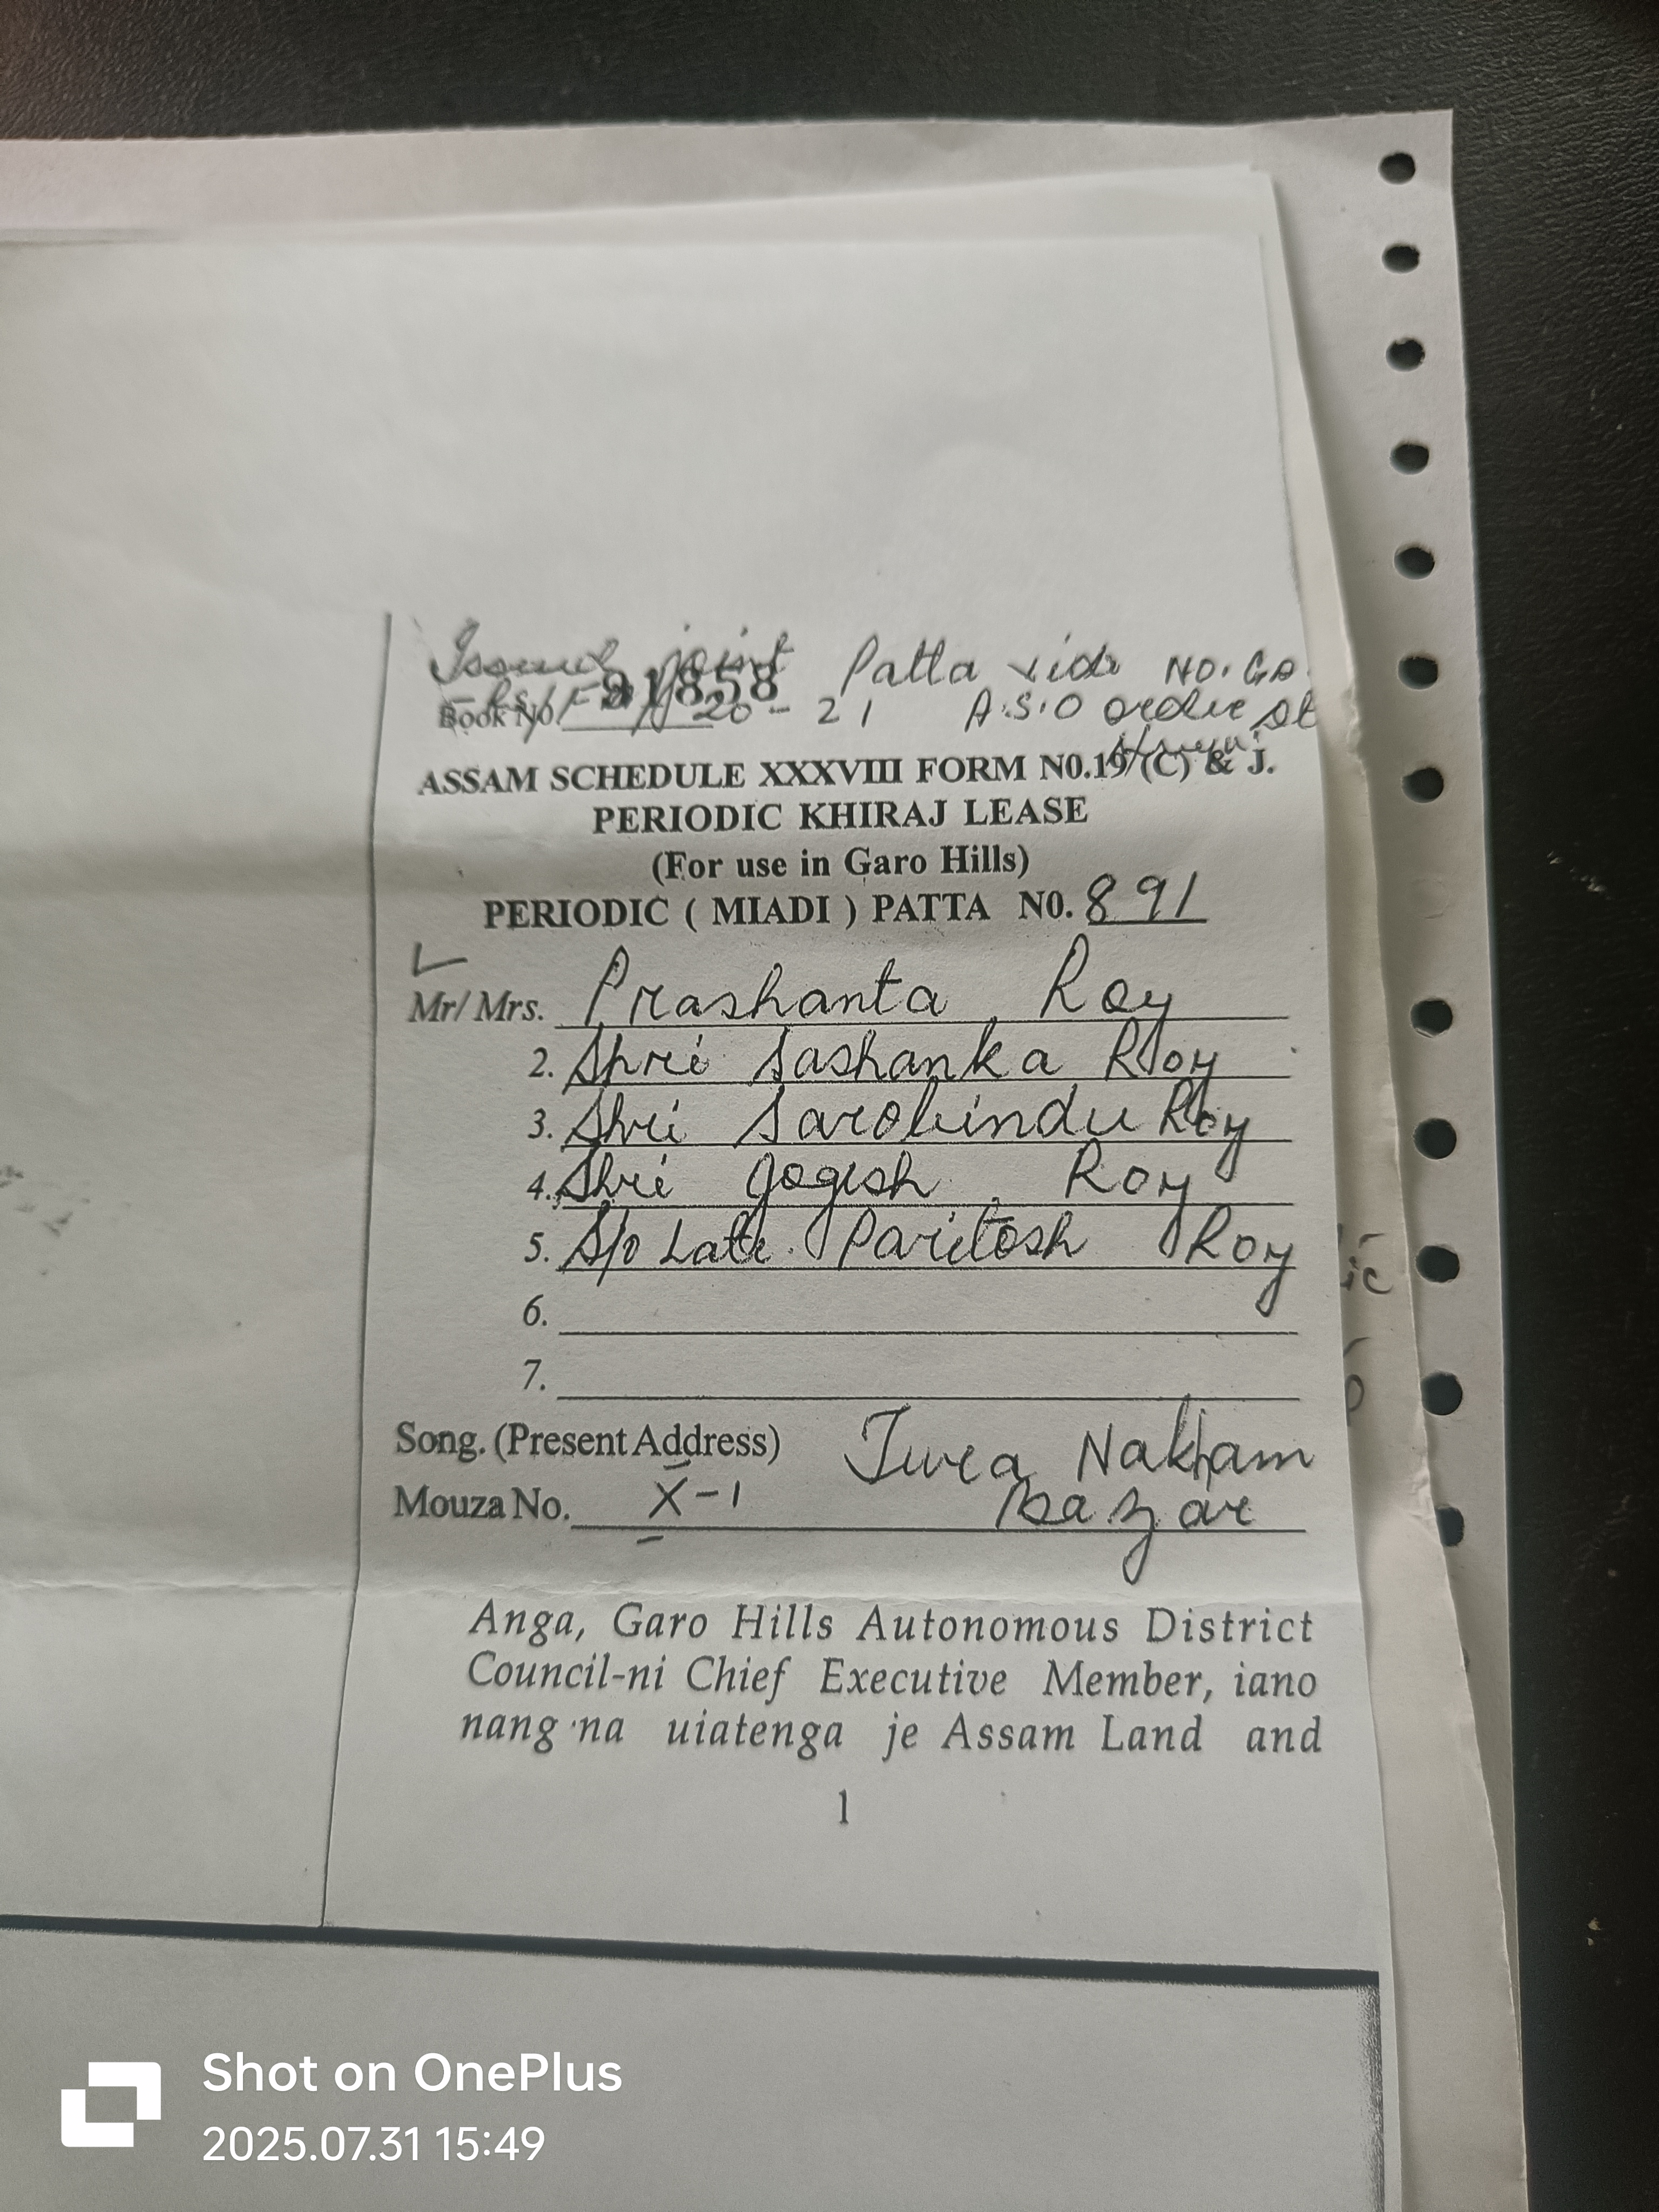 Issued joint Patta vide NO. GA
Book No. 91858 20-21 A.S.O order dt
ASSAM SCHEDULE XXXVIII FORM N0.19 (C) & J.
PERIODIC KHIRAJ LEASE
(For use in Garo Hills)
PERIODIC ( MIADI ) PATTA N0. 891
Mr/ Mrs. Prashanta Roy
2. Shri Sashanka Roy
3. Shri Sarobindu Roy
4. Shri Jogesh Roy
5. S/o Late Paritosh Roy
6.
7.
Song. (Present Address) Tura Nakham
Mouza No. X-1 Bazar
Anga, Garo Hills Autonomous District
Council-ni Chief Executive Member, iano
nang·na uiatenga je Assam Land and
1
Shot on OnePlus
2025.07.31 15:49